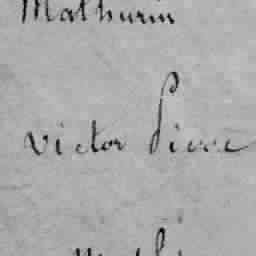 Mathurin
Victor Pierre